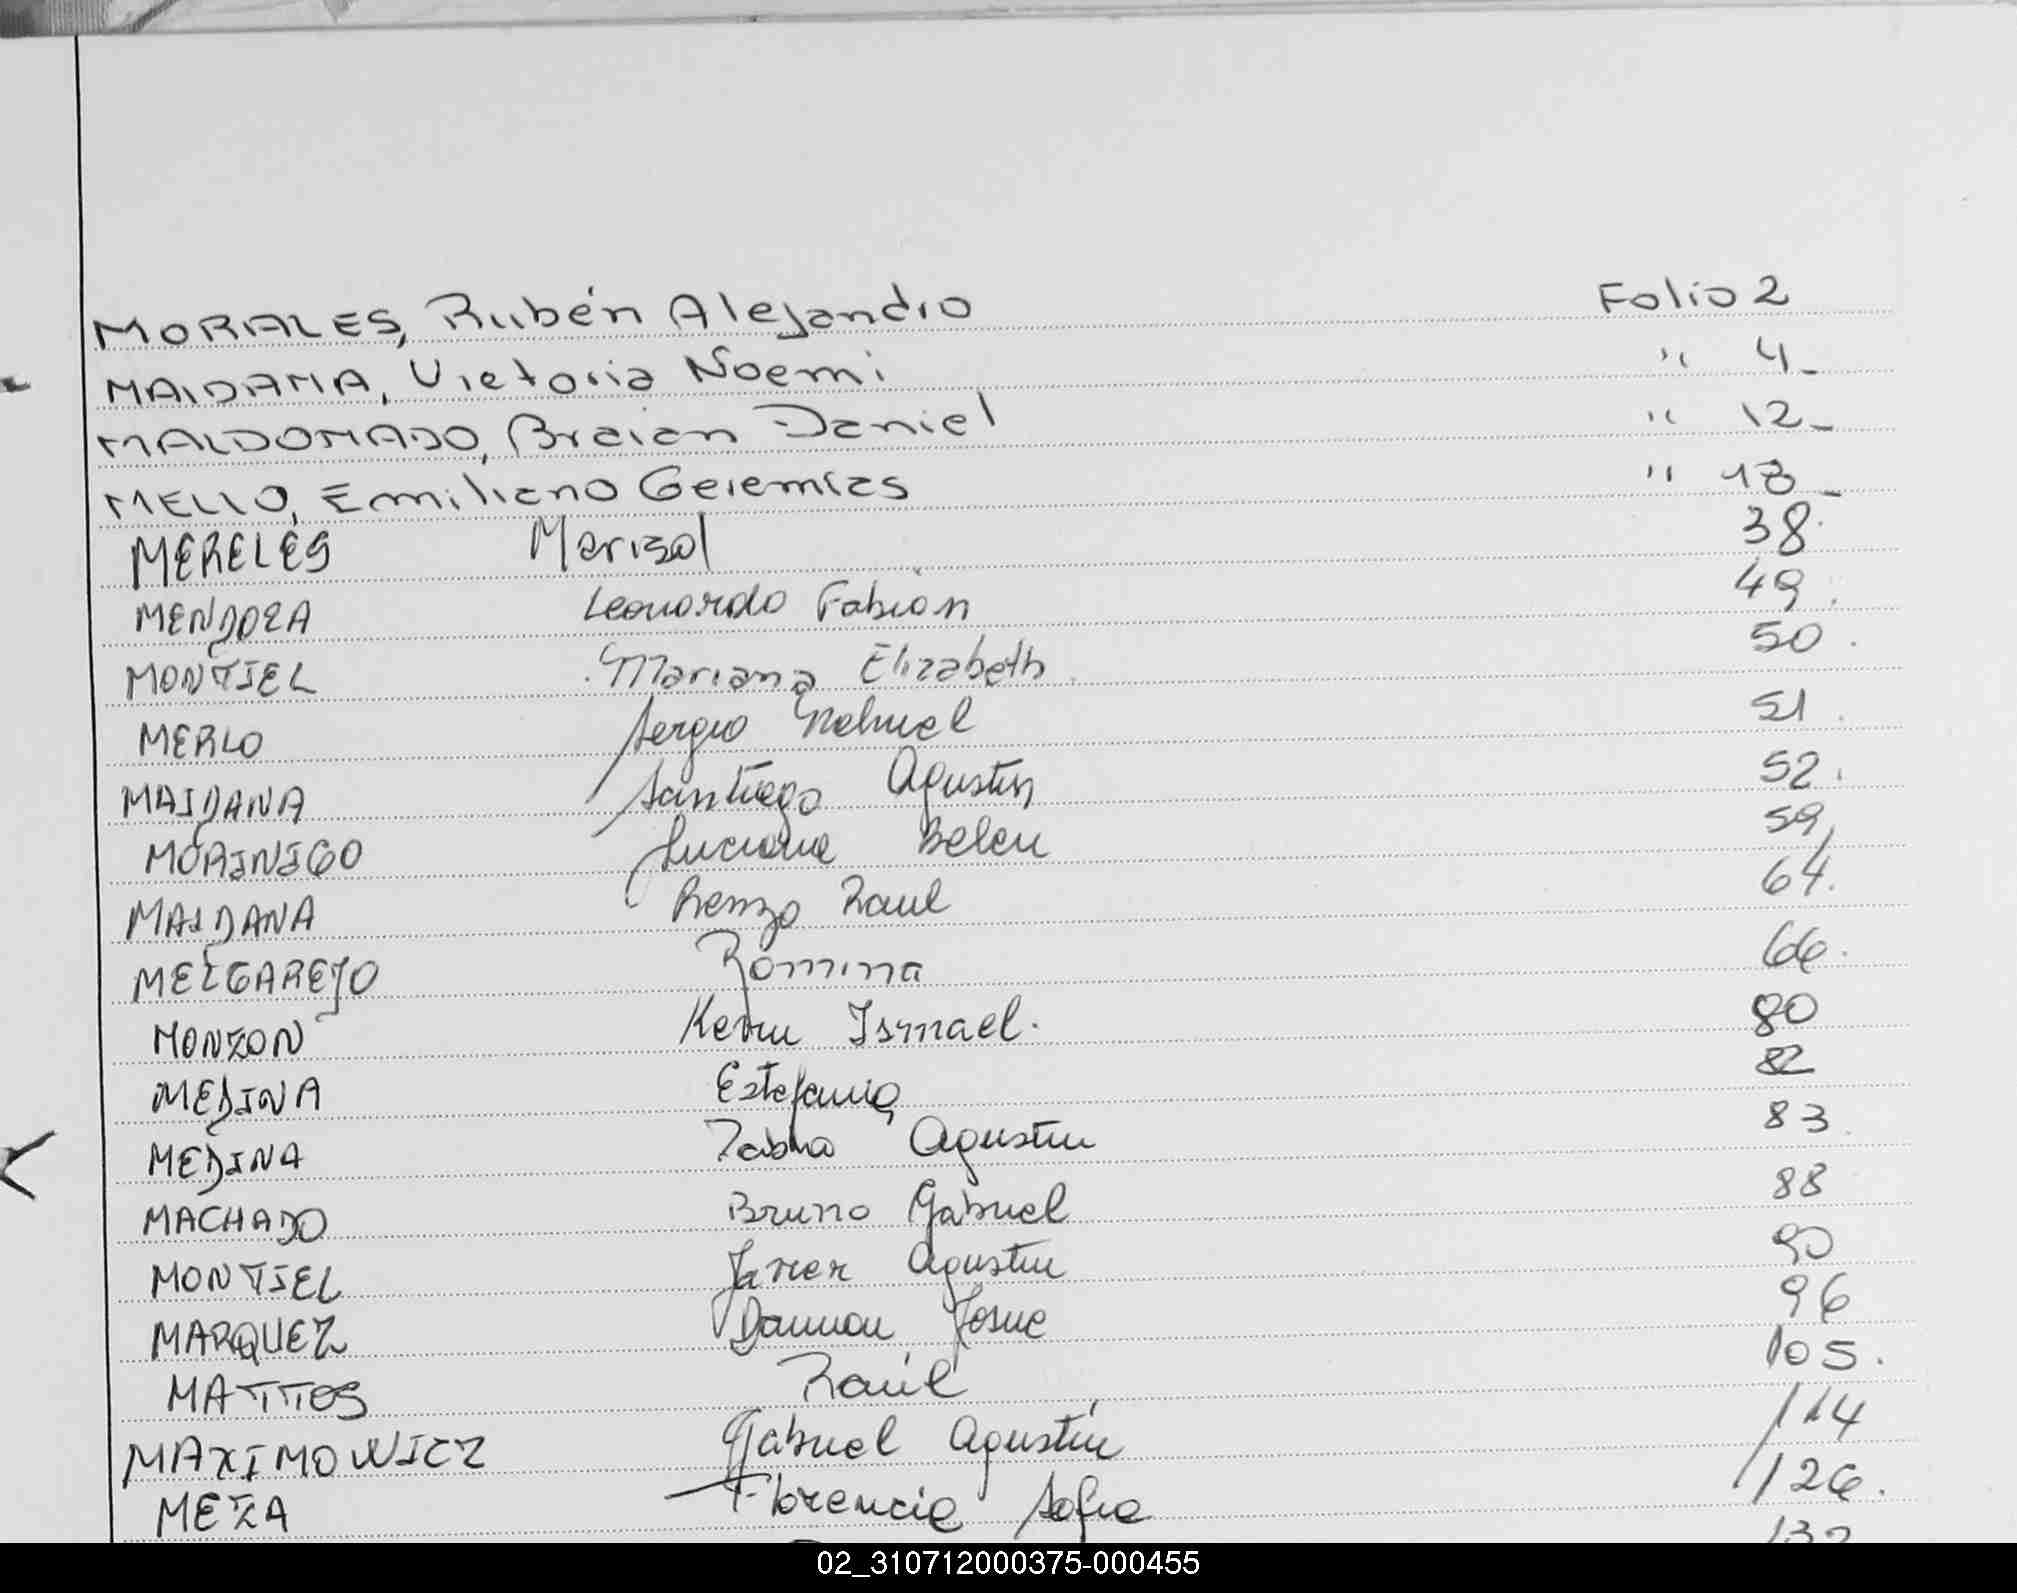 MORALES, Rubén Alejandro Folio 2
MAIDANA, Victoria Noemi " 4_
MALDONADO, Braian Daniel " 12_
MELLO, Emiliano Geremías " 18_
MERELES Marisol 38.
MENDOZA Leonardo Fabian 49.
MONTIEL Mariana Elizabeth 50.
MERLO Sergio Nahuel 51.
MAIDANA Santiago Agustin 52.
MORINIGO Luciana Belen 59,
MAIDANA Renzo Raul 64.
MELGAREJO Romina 66.
MONZON Kevin Ismael. 80
MEDINA Estefania 82
MEDINA Agustin 83
MACHADO Bruno Gabriel 88
MONTIEL Javier Agustin 90
MARQUEZ Josue 96
MATTOS Raúl 105.
MAXIMOWICZ Gabriel Agustín 114
MEZA Florencia Sofia 126.
02_310712000375-000455